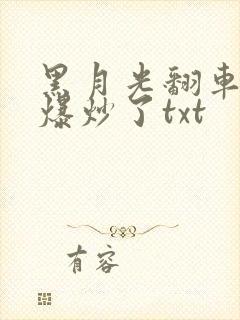 黑月光翻车
爆炒了txt
有容